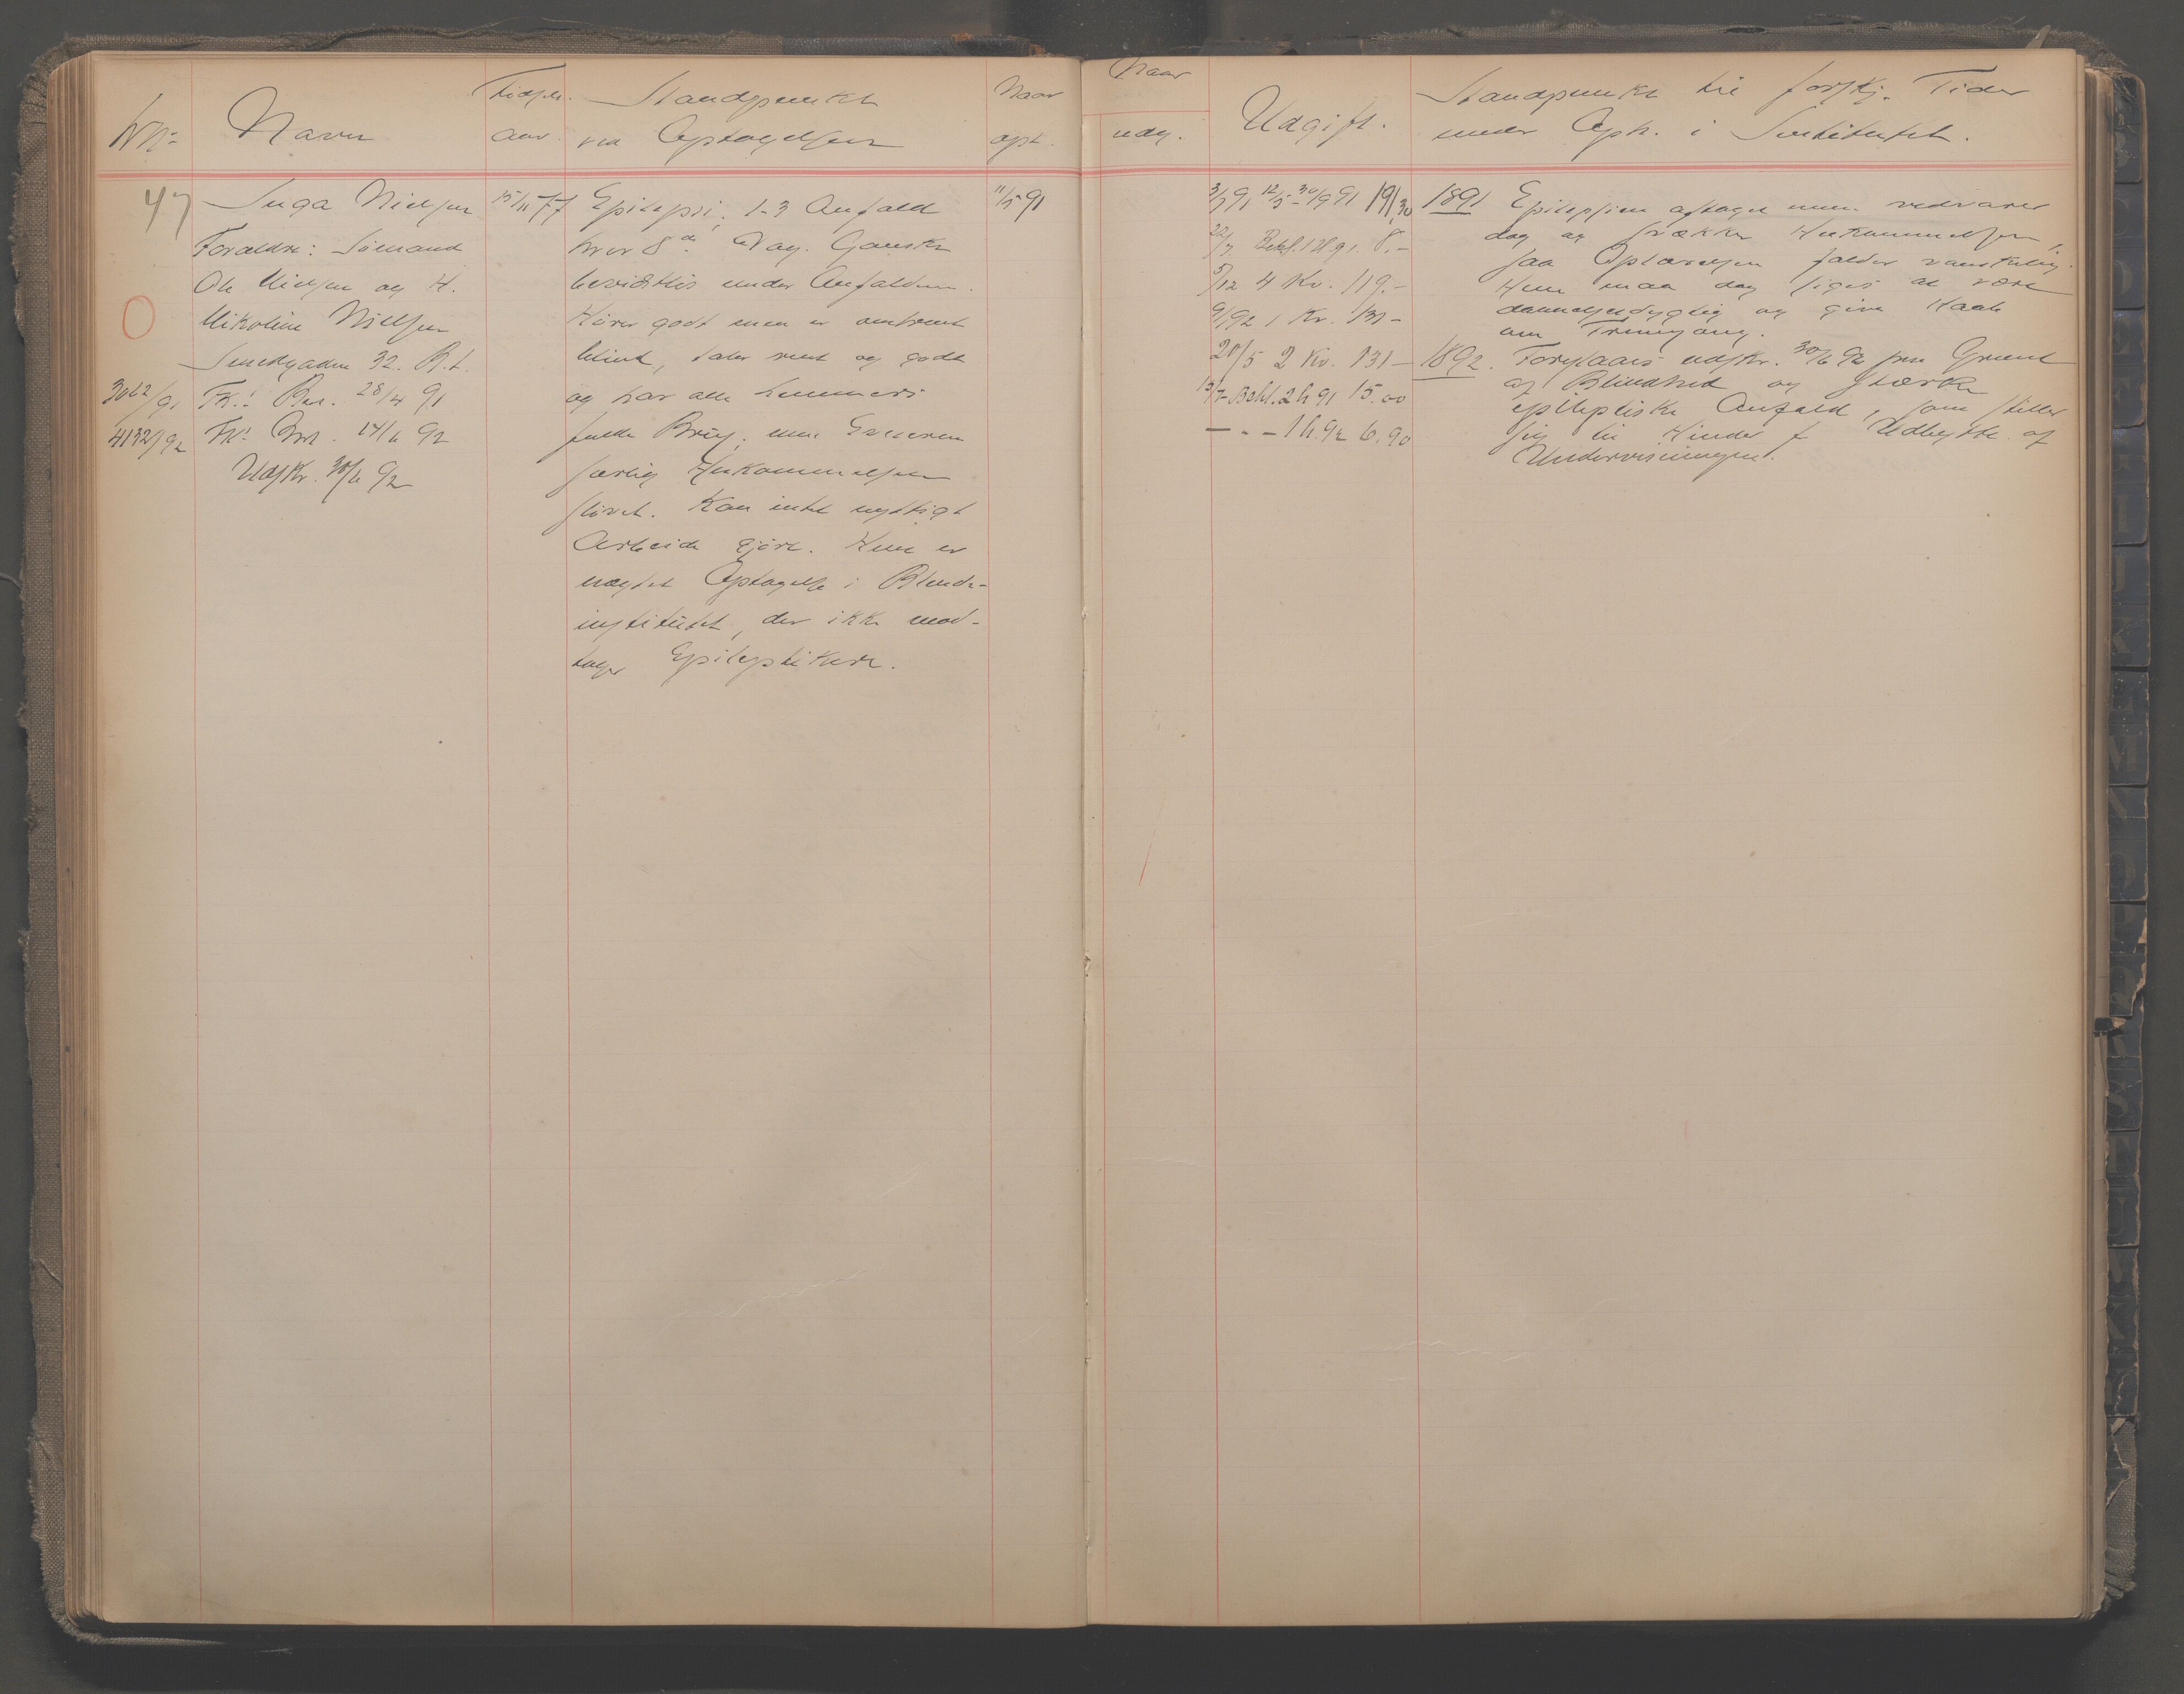 No. Navn Fødsels- aar. Standpunkt ved Optagelsen Naar opt.
47
Inga Nielsen
Forældre: Sømand
Ole Nielsen og H.
Nikoline Nielsen
Smedgaden 32. B.t.
3062/91 Fk.: Bev. 28/4 91
4132/92 Fk. 14/6 92
Udskr. 30/6 92
15/11 77
Epilepsi, 1-3 Anfald
hver 8de Dag. Ganske
bevidstløs under Anfaldene.
Hører godt men er omtrent
blind, taler rent og godt
og har alle Lemmers
fulde Brug, men Evnerne
særlig Hukommelsen
sløvet. Kan intet nyttigt
Arbeide gjøre. Hun er
nægtet Optagelse i Blinde-
institutet, der ikke mod-
tager Epileptikere.
11/5 91
Naar udg. Udgift. Standpunkt til forskj. Tider
under Oph. i Institutet.
3/7 91 12/5 - 30/9 91 191,30
22/7 Bekl. 1 H 91 8.-
5/12 4 Kv. 119.-
9/1 92 1 Kv. 131 -
20/5 2 Kv. 131 -
13/7 Bekl. 2 h 91 15.00
— - - 1 h. 92 6.90
1891 Epilepsien aftaget men vedvarer
dog og svækker Hukommelsen,
saa Oplærelsen falder vanskelig.
Hun maa dog siges at være
dannelsesdygtig og give Haab
om Fremgang.
1892. Foreslaaes udskr. 30/6 92 paa Grund
af Blindhed og stærke
epileptiske Anfald, som stiller
sig til Hinder f Udbytte af
Undervisningen.